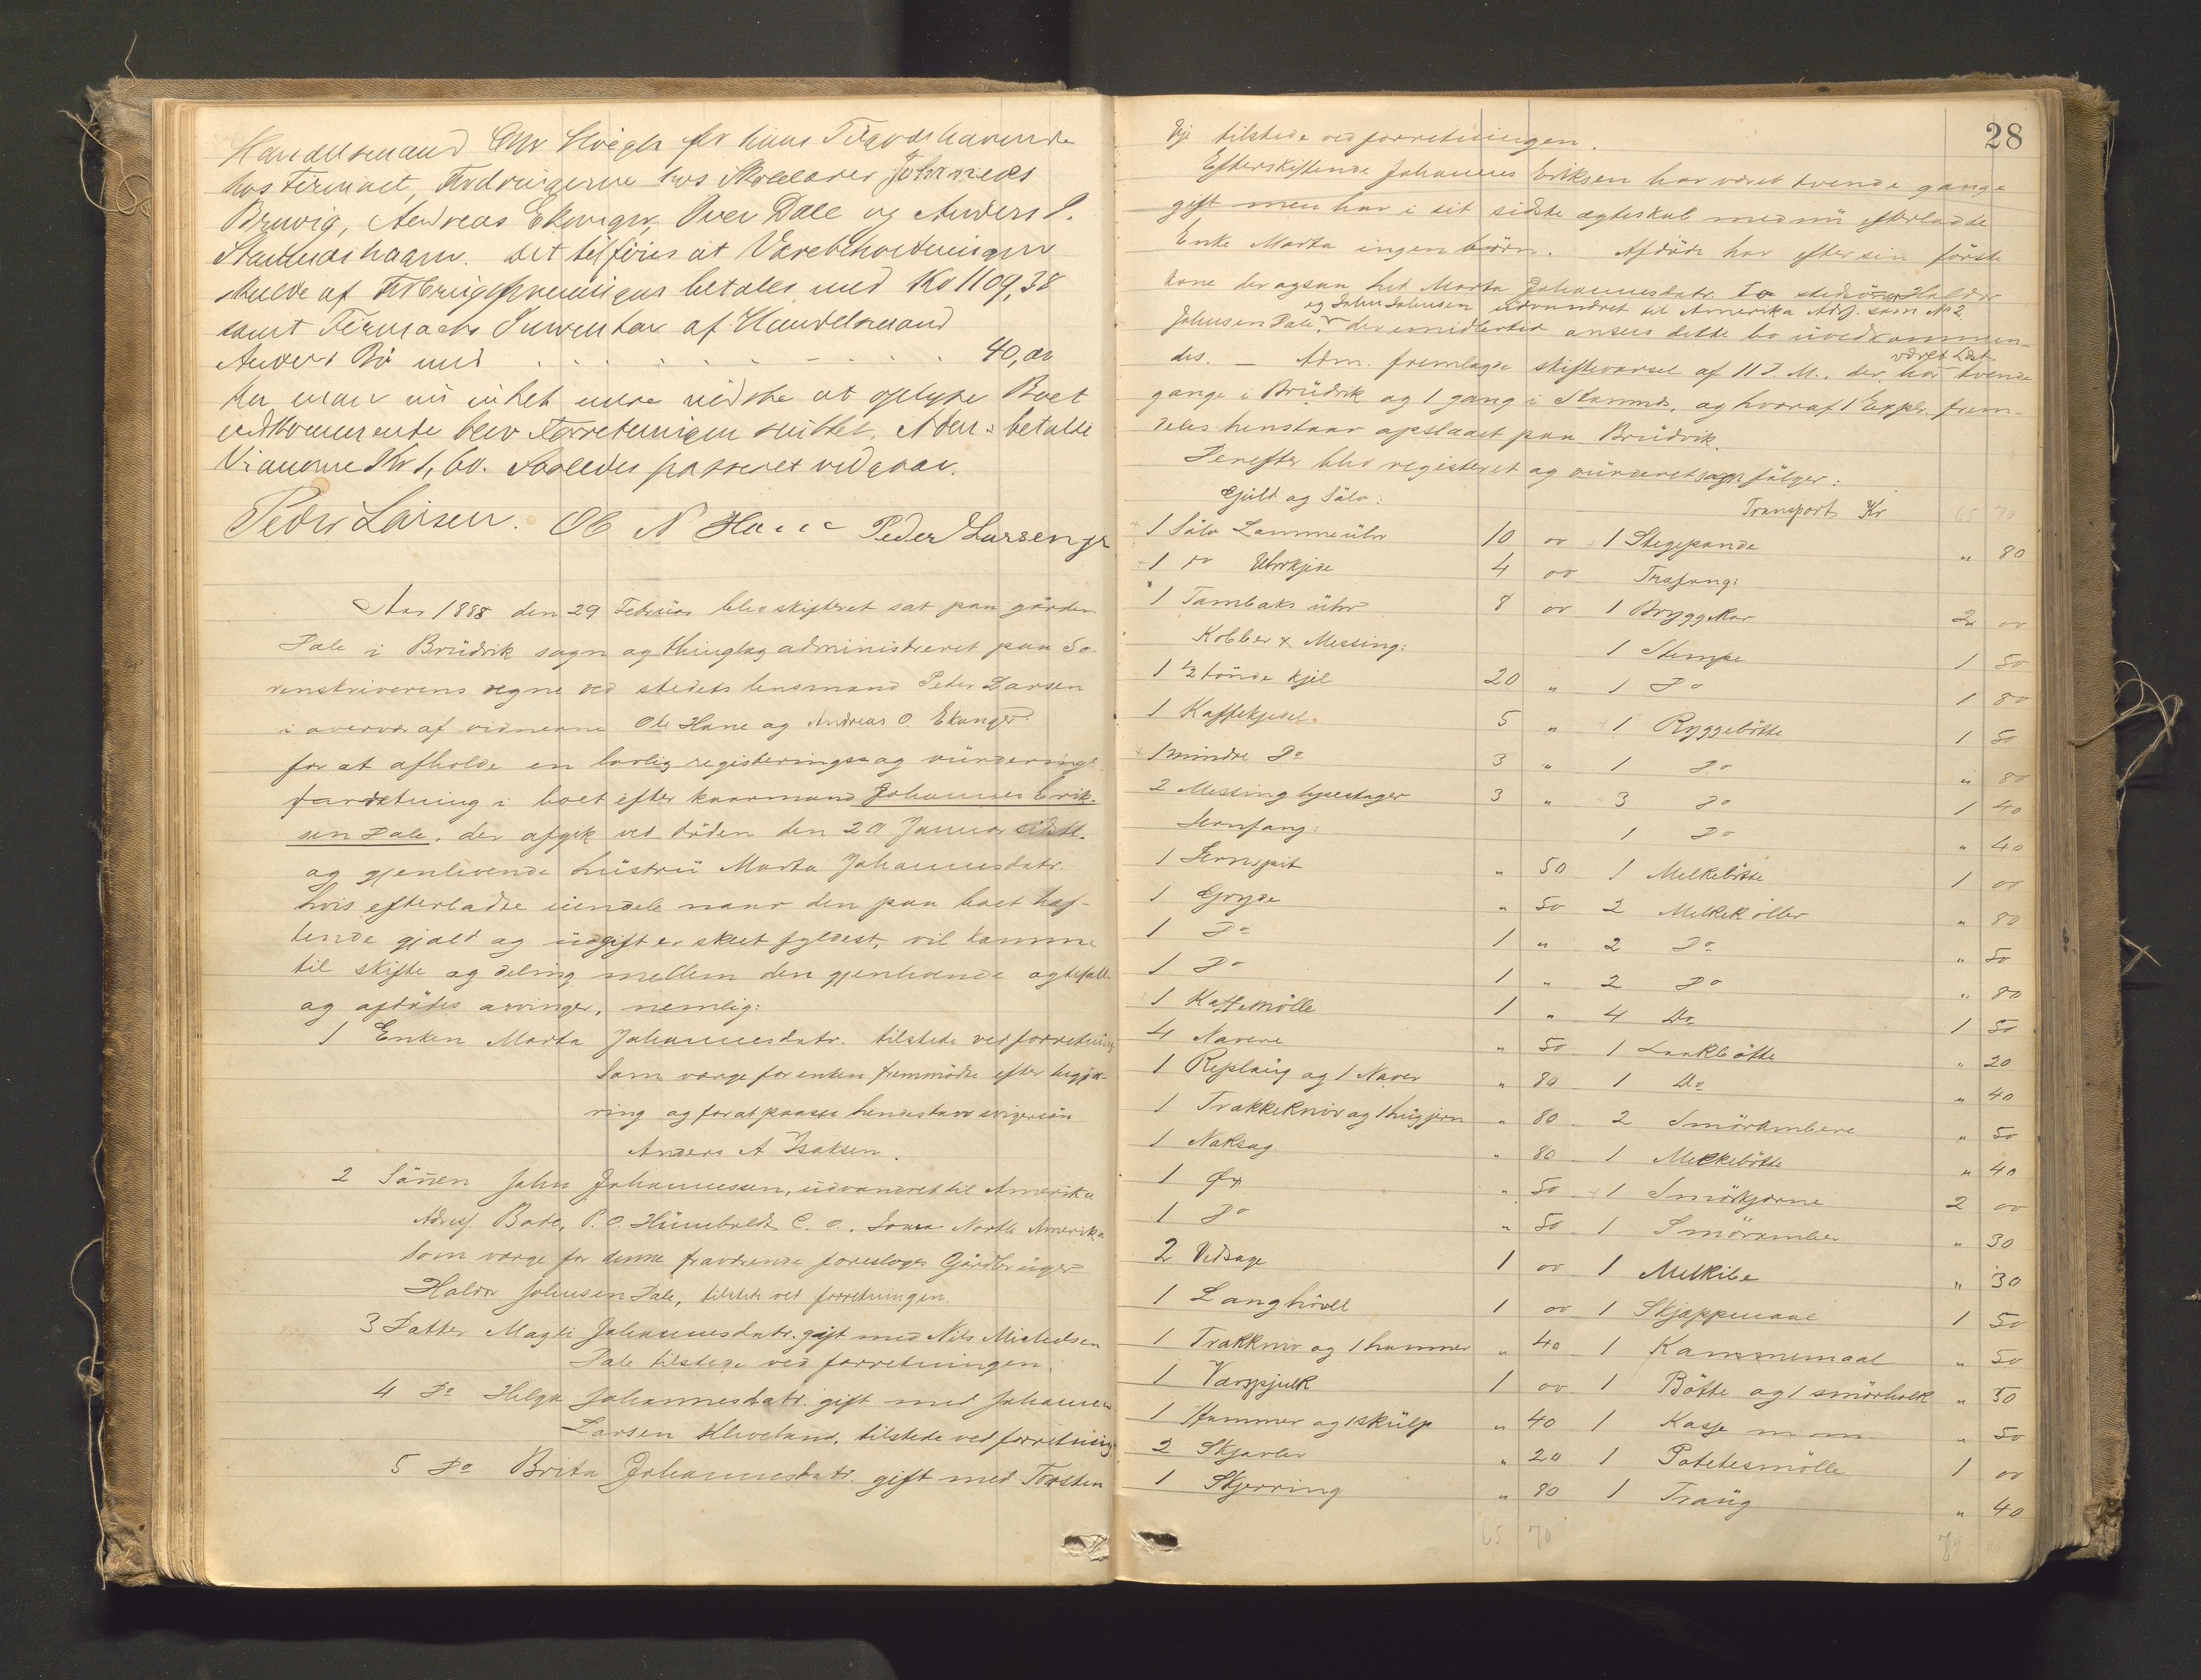 Handelsmand Ole for hans Tilgodehavende
hos Firmaet, Fordringerne hos Skolelærer Johannes
Bruvig, Andreas Ekanger, Iver Dale og Anders J.
Stamneshagen. Det tilføies at Varebeholdningen
skulde af Forbrugsforeningen betales med Kr 1109,38
samt Firmaets Inventar af Handelsmand
Anders Bø med . . . . . . . . . 40,00
Da man nu intet mere vidste at oplyse Boet
vedkommende blev Forretningen sluttet. Adm. betalte
Vidnerne Kr 1,60. Saaledes passeret vidnes.
Peder Larsen. Ole N Hane Peder Larsen jr
Aar 1888 den 29 Februar blev skifteret sat paa gården
Dale i Brüdvik sogn og thinglag administreret paa So-
renskriverens vegne ved stedets lensmand Peder Larsen
i overvær af vidnerne Ole Hane og Andreas O. Ekanger
for at afholde en lovlig registerings og vürderings
forretning i boet efter kaarmand Johannes Erik-
sen Dale, der afgik ved döden den 20 Januar sidstl.
og gjenlevende hüstrü Marta Johannesdatr.
hvis efterladte eiendele naar den paa boet hef-
tende gjæld og üdgift er skeet fyldest, vil komme
til skifte og deling mellem den gjenlevende ægtefælle
og afdødes arvinger, nemlig:
1 Enken Marta Johannesdatr. tilstede ved forretning
Som værge for enken fremmödte efter begjæ-
ring og for at paasse hendes tarv svigersön
Anders A Isaksen.
2 Sönnen John Johannessen, üdvandret til Amerika
Adress. Bode, P.O. Hümboldt C. o., Iowa North Amerika
Som værge for denne fraværende foresloges Gårdbrüger
Haldor Johnsen Dale, tilstede ved forretningen.
3 Datter Magli Johannesdatr. gift med Nils Michelsen
Dale tilstede ved forretningen.
4 Do Helga Johannesdatr. gift med Johannes
Larsen Kleveland, tilstede ved forretning
5 Do Brita Johannesdatr. gift med Torsten
28
Eje tilstede ved forretningen.
Efterskiftende Johannes Eriksen har været tvende gange
gift men har i sit sidste ægteskab med nü efterladte
Enke Marta ingen börn. Afdöde har efter sin förste
kone der ogsaa hed Marta Johannesdatr. to stedsönner Haldor
og John Johnsen üdvandret til Amerika Adr. som No 2
Johnsen Dale, der imidlertid ansees dette bo üvedkommen-
des. – Adm. fremlagde skiftevarsel af 11 d. M., der har været læst tvende
gange i Brüdvik og 1 gang i Stamnes, og hvoraf 1 Expl. frem-
deles henstaar opslaaet paa Brüdvik.
Derefter blev registeret og vürderet som fölger:
Güld og Sölv: Transport Kr 65 70
1 Sölv Lommeühr 10 00 1 Stegepande " 80
1 do Uhrkjede 4 00 Træfang:
1 Tambaks ühr 8 00 1 Bryggekar 2 00
Kobber & Messing: 1 Stempe 1 50
1 1/2 tönde kjel 20 " 1 Do 1 80
1 Kaffekjedel 5 " 1 Ryggebötte 1 50
1 mindre Do 3 " 1 Do " 80
2 Messing lysestager 3 " 3 Do 1 40
Jernfang: 1 Do " 40
1 Jernspit " 50 1 Melkebötte 1 00
1 Gryde " 50 2 Melkekoller " 80
1 Do 1 " 2 Do " 50
1 Do 1 " 2 Do " 80
1 Kaffemölle 1 " 4 Do 1 50
4 Navere " 50 1 Laakbötte " 20
1 Replaüg og 1 Naver " 80 1 Do " 40
1 Trækkekniv og 1 hügjern " 80 2 Smörambere " 50
1 Naksag " 80 1 Melkebötte " 40
1 Øx " 50 1 Smörkjerne 2 00
1 Do " 50 1 Smöramber " 30
2 Vedsage 1 00 1 Melksibe " 30
1 Langhövel 1 00 1 Skjeppemaal 1 50
1 Trækkniv og 1 hammer " 40 1 Kammemaal " 50
1 Vorspjülk 1 00 1 Bötte og 1 smörholk " 50
1 Hammer og 1 skülp " 40 1 Kasse m m " 50
2 Skjæreler " 20 1 Potetesmölle 1 00
1 Skjerring " 80 1 Traüg " 40
65 70 89